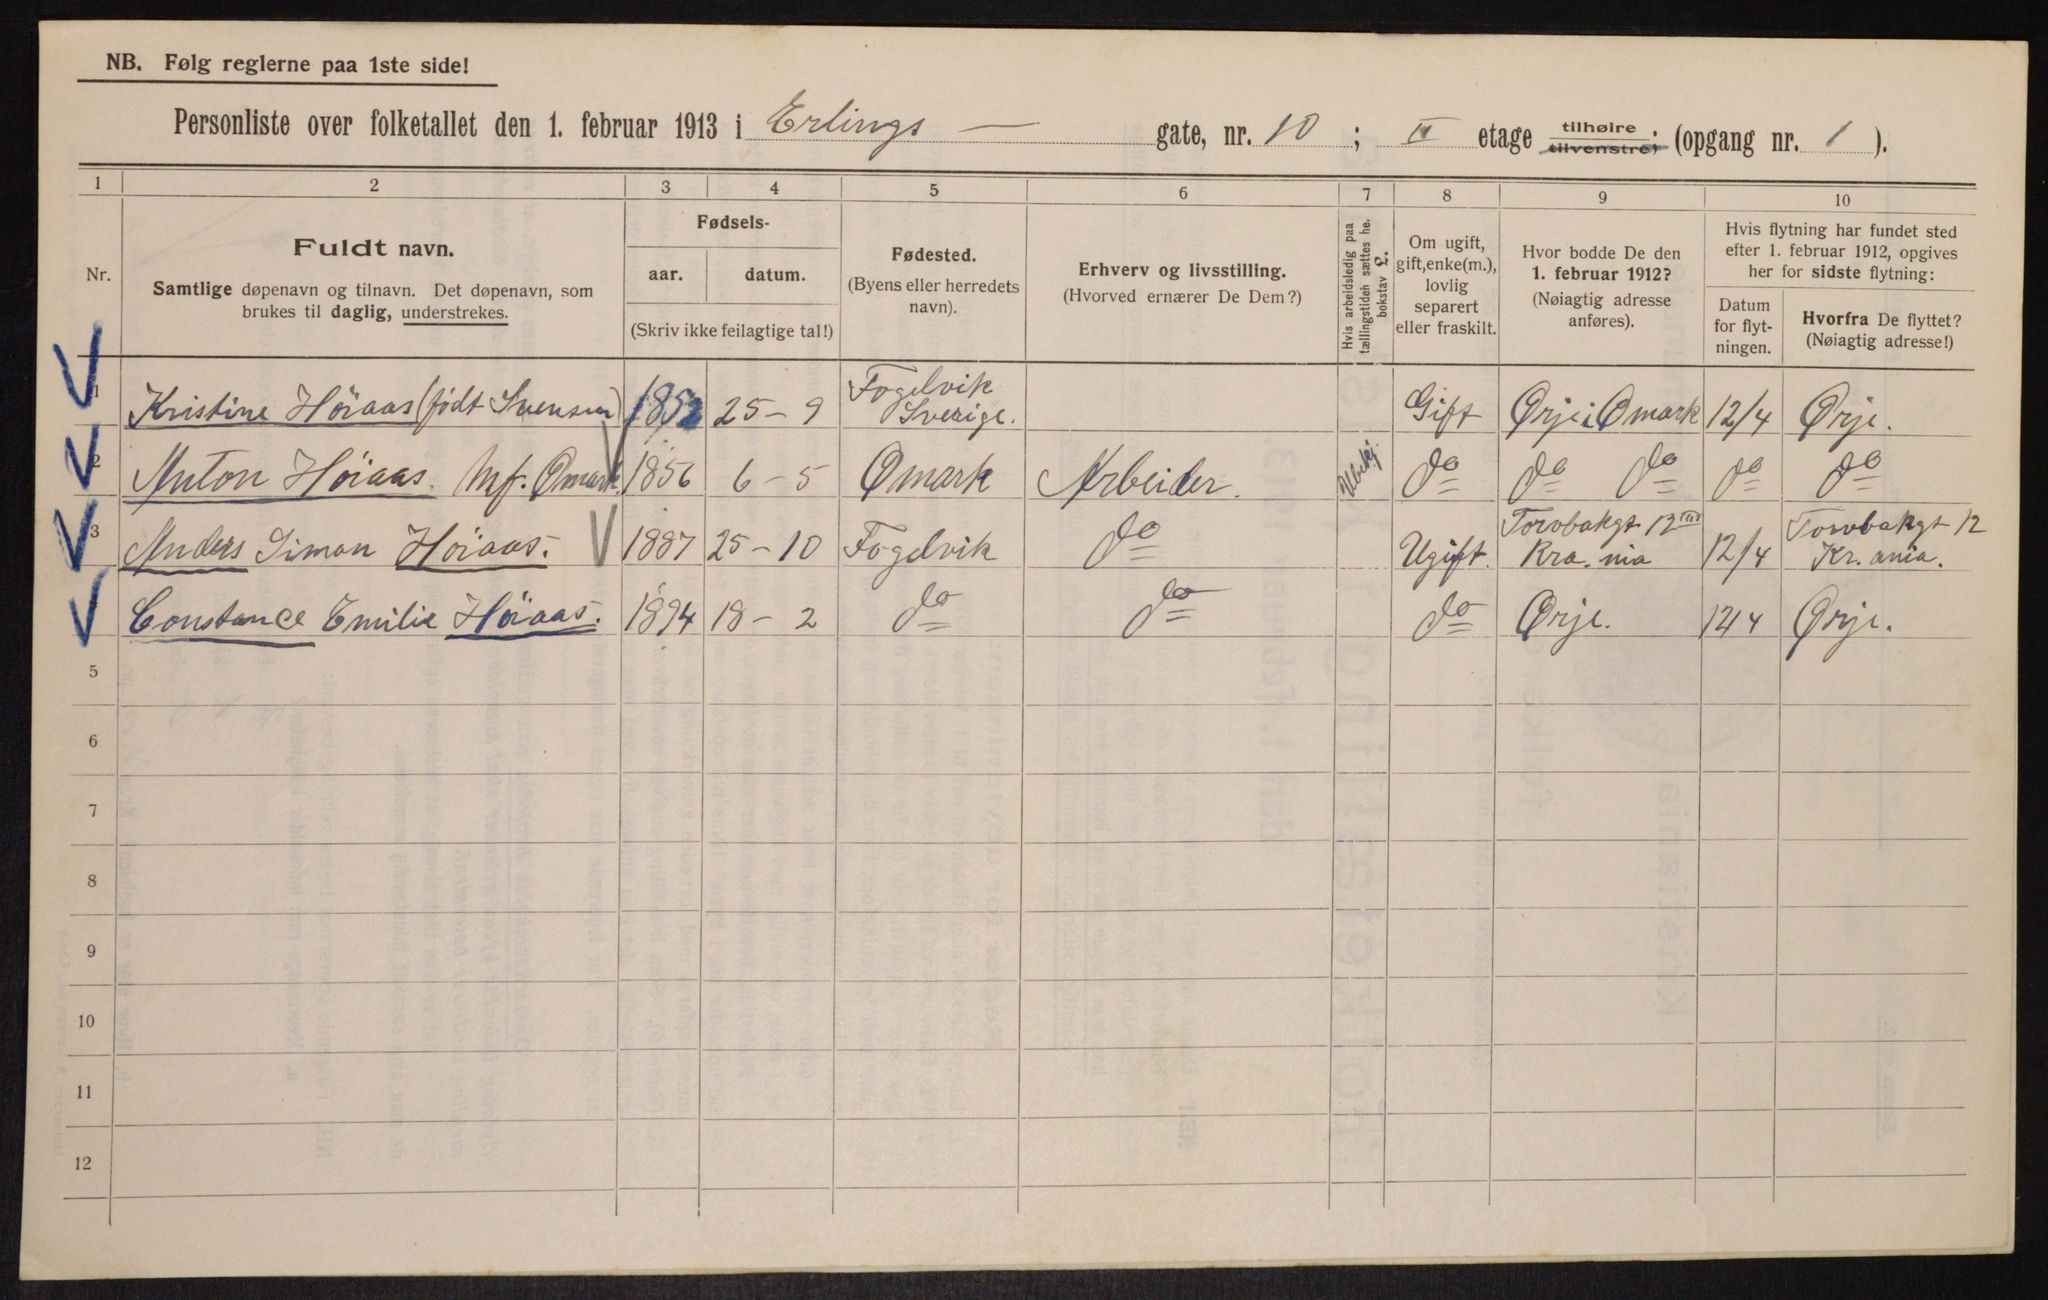 NB. Følg reglerne paa 1ste side!
Personliste over folketallet den 1. februar 1913 i Erlings — gate, nr. 10 ; II etage tilhøire. tilvenstre) (opgang nr. 1 ).
1 2 3 4 5 6 7 8 9 10
Nr.
Fuldt navn.
Samtlige døpenavn og tilnavn. Det døpenavn, som
brukes til daglig, understrekes.
Fødsels-
aar. datum.
(Skriv ikke feilagtige tal!)
Fødested.
(Byens eller herredets
navn).
Erhverv og livsstilling.
(Hvorved ernærer De Dem?)
Hvis arbeidsledig paa
tællingstiden sættes her
bokstav L.
Om ugift,
gift, enke(m.),
lovlig
separert
eller fraskilt.
Hvor bodde De den
1. februar 1912?
(Nøiagtig adresse
anføres).
Hvis flytning har fundet sted
efter 1. februar 1912, opgives
her for sidste flytning:
Datum
for flyt-
ningen.
Hvorfra De flyttet?
(Nøiagtig adresse!)
1 Kristine Höiaas (födt Svensen) 1852 25-9 Fogelvik Sverige. Gift Ørje i Ømark 12/4 Ørje.
2 Anton Höiaas. Mf. Ømark. 1856 6-5 Ømark Arbeider. do do do do do
3 Anders Simon Höiaas. 1887 25-10 Fogelvik do Ugift. Torvbakgt 12 Kra.nia 12/4 Torvbakgt 12 Kr.ania.
Constance Emilie Höiaas. 1894 18-2 do do do Ørje. 12/4 Ørje.
5
6
7
8
9
10
11
12